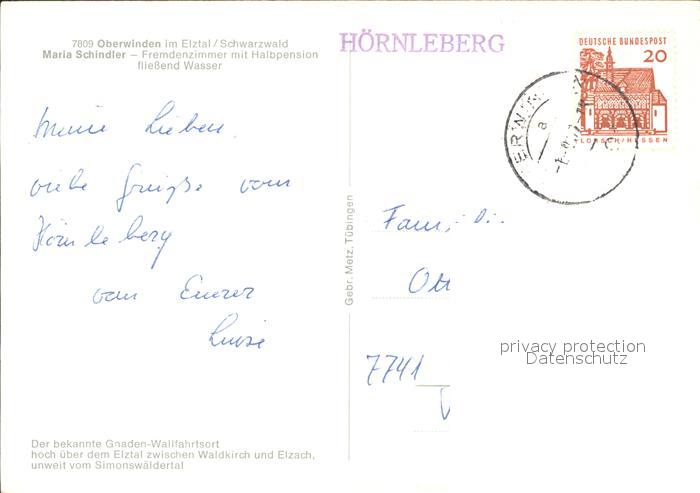 7809 Oberwinden im Elztal / Schwarzwald
Maria Schindler – Fremdenzimmer mit Halbpension
fließend Wasser
HÖRNLEBERG
DEUTSCHE BUNDESPOST
20
LORSCH/HESSEN
Meine Lieben
viele Grüße vom
Hörnleberg
von Eurer
Luise
Gebr. Metz, Tübingen
Famili
Ott
7741
privacy protection
Datenschutz
Der bekannte Gnaden-Wallfahrtsort
hoch über dem Elztal zwischen Waldkirch und Elzach,
unweit vom Simonswäldertal